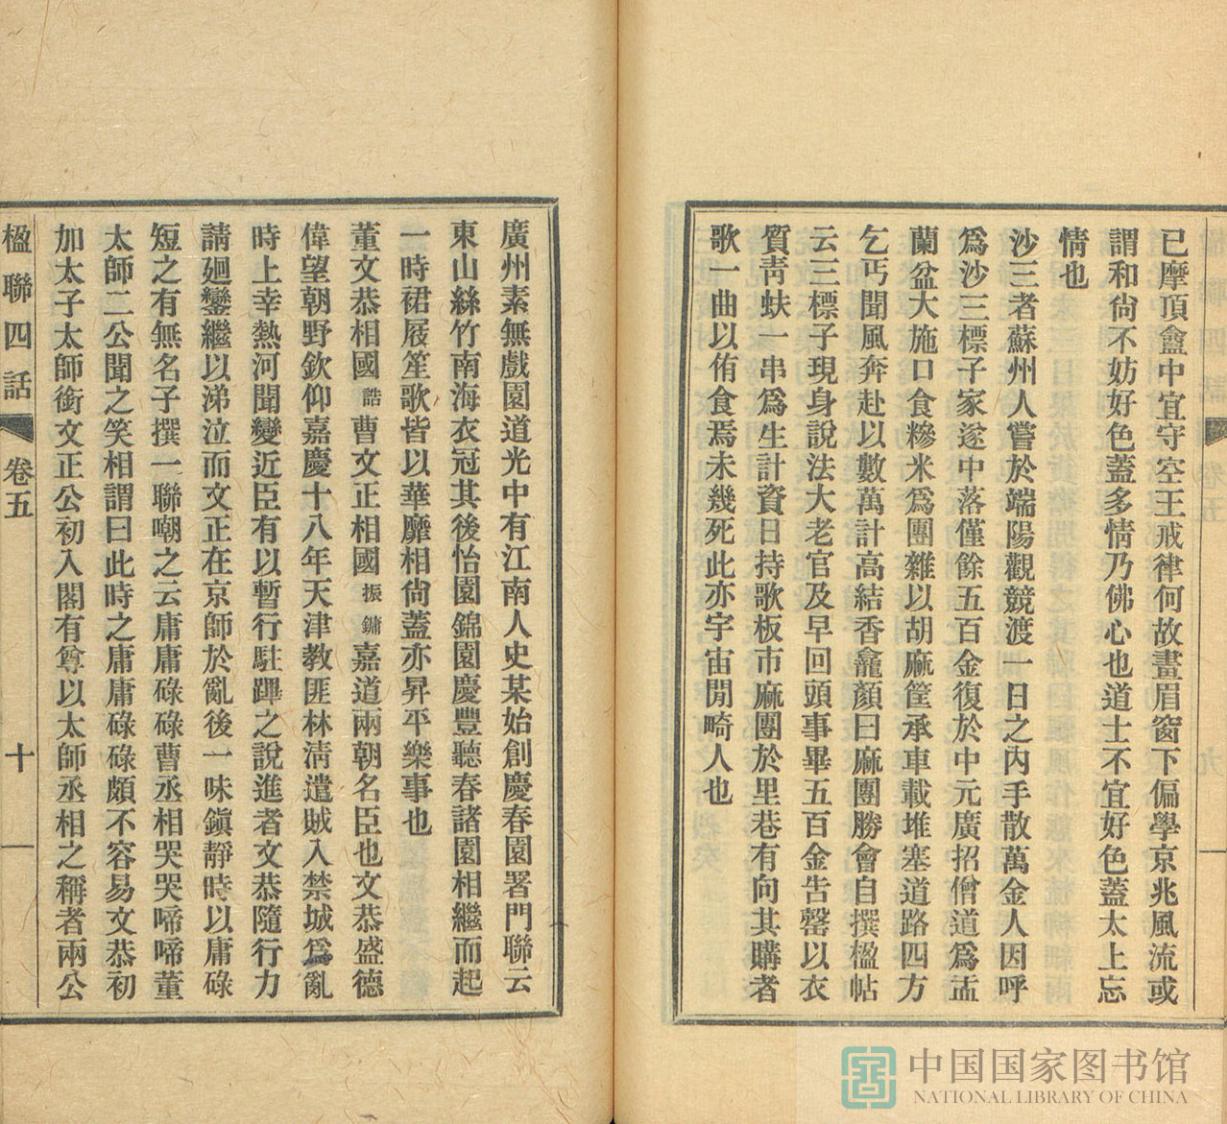 已摩頂龕中宜守空王戒律何故畫眉窗下偏學京兆風流或
謂和尙不妨好色蓋多情乃佛心也道士不宜好色蓋太上忘
情也
沙三者蘇州人嘗於端陽觀競渡一日之內手散萬金人因呼
爲沙三標子家遂中落僅餘五百金復於中元廣招僧道爲盂
蘭盆大施口食糝米爲團雜以胡麻筐承車載堆塞道路四方
乞丐聞風奔赴以數萬計高結香龕顏曰麻團勝會自撰楹帖
云三標子現身說法大老官及早回頭事畢五百金吿罄以衣
質靑蚨一串爲生計資日持歌板市麻團於里巷有向其購者
歌一曲以侑食焉未幾死此亦宇宙閒畸人也
廣州素無戲園道光中有江南人史某始創慶春園署門聯云
東山絲竹南海衣冠其後怡園錦園慶豐聽春諸園相繼而起
一時裙屐笙歌皆以華靡相尙蓋亦昇平樂事也
董文恭相國誥曹文正相國振鏞嘉道兩朝名臣也文恭盛德
偉望朝野欽仰嘉慶十八年天津教匪林淸遣賊入禁城爲亂
時上幸熱河聞變近臣有以暫行駐蹕之說進者文恭隨行力
請廻鑾繼以涕泣而文正在京師於亂後一味鎭靜時以庸碌
短之有無名子撰一聯嘲之云庸庸碌碌曹丞相哭哭啼啼董
太師二公聞之笑相謂曰此時之庸庸碌碌頗不容易文恭初
加太子太師銜文正公初入閣有尊以太師丞相之稱者兩公
楹聯四話 卷五 十
中国国家图书馆
NATIONAL LIBRARY OF CHINA